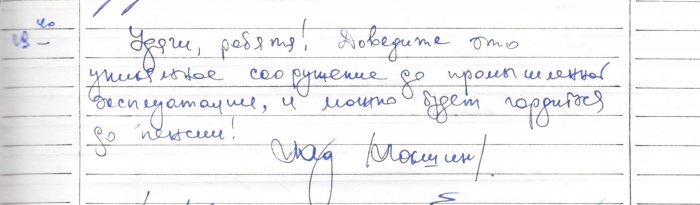 19 40
Удачи, ребята! Доведите это
уникальное сооружение до промышленной
эксплуатации, и можно будет гордиться
до пенсии!
/Мокшин/.